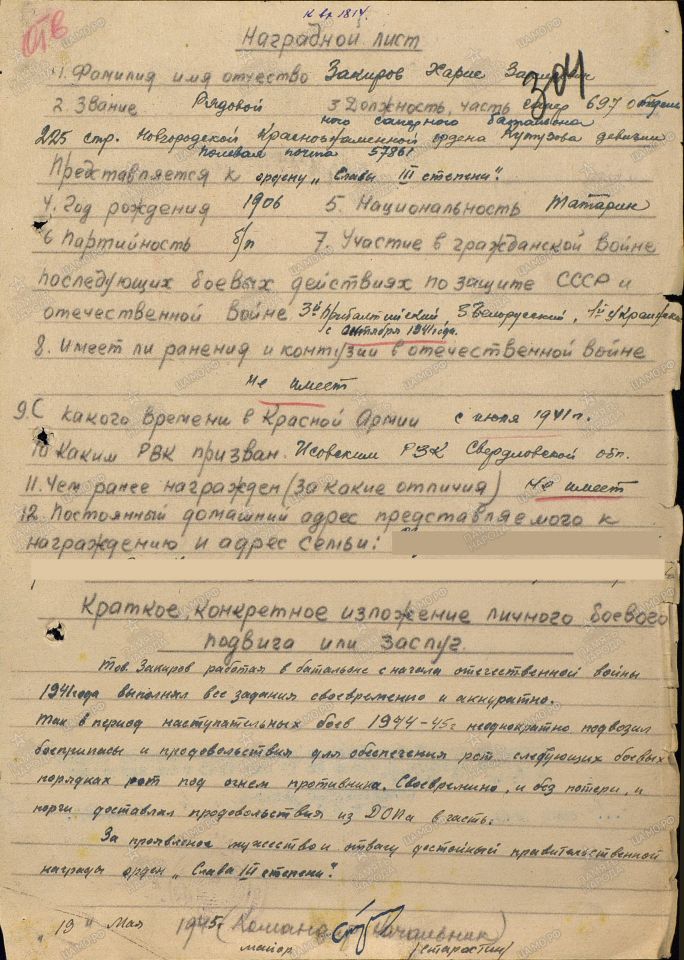 к вх 1814.
отв
Наградной лист
304
1. Фамилия имя отчество Закиров Харис
2. Звание Рядовой 3 Должность, часть сапер 697 отдель
ного саперного батальона
225 стр. Новгородской Краснознаменной ордена Кутузова дивизии
полевая почта 57861
Представляется к ордену „Славы III степени".
4. Год рождения 1906 5. Национальность Татарин
6 Партийность б/п 7. Участие в гражданской войне
последующих боевых действиях по защите СССР и
отечественной войне 3й Прибалтийский, 3 Белорусский, 1й Украинский
с октября 1941 года.
8. Имеет ли ранения и контузии в отечественной войне
не имеет
9. С какого времени в Красной Армии с июля 1941 г.
10 Каким РВК призван. Исовским РВК Свердловской обл.
11. Чем ранее награжден (за какие отличия) не имеет
12. Постоянный домашний адрес представляемого к
награждению и адрес семьи:
Краткое, конкретное изложение личного боевого
подвига или заслуг.
Тов. Закиров работая в батальоне с начала отечественной войны
1941 года выполнял все задания своевременно и аккуратно.
Так в период наступательных боев 1944-45г неоднократно подвозил
боеприпасы и продовольствия для обеспечения рот следующих боевых
порядках рот под огнем противника. Своевременно, и без потери, и
порчи доставлял продовольствия из ДОПа в часть.
За проявленое мужество и отвагу достойный правительственной
награды орден „Слава III степени".
„19" Мая 1945г (Команд Начальник)
майор /Старостин/